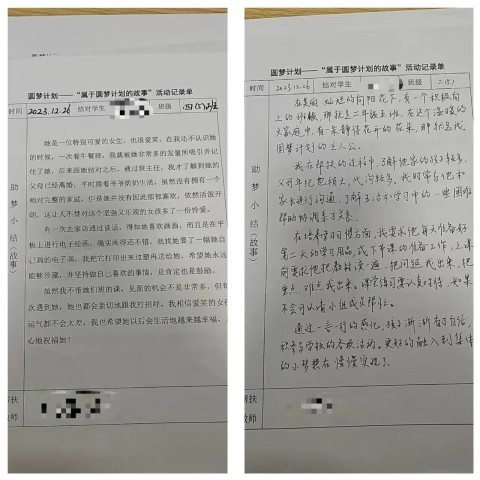 圆梦计划——“属于圆梦计划的故事”活动记录单
时间
2023.12.26
结对学生
班级
四(5)班
助梦小结（故事）
她是一位特别可爱的女生，也很爱笑，在我还不认识她
的时候，一次看午餐班，我就被她非常多的发量所吸引并记
住了她，后来跟她结对之后，通过班主任，我才了解到她的
父母已经离婚，平时跟着爷爷奶奶生活，虽然没有拥有一个
相对完整的家庭，但是她并没有因此郁郁寡欢，依然活泼开
朗，这让人不禁对这个坚强又乐观的女孩多了一份怜爱。
有一次去家访通过谈话，得知她喜欢画画，而且是在平
板上进行电子绘画。确实画得还不错，就找她要了一幅她自
己画的电子画，我把它打印出来过塑再送给她，希望她永远
能够珍藏，并坚持做自己喜欢的事情，是肯定也是鼓励。
虽然我不带她们班的课，见面的机会不是非常多，但每
次遇到她，她也都会亲切地跟我打招呼。我相信爱笑的女孩
运气都不会太差，我也希望她以后会生活地越来越幸福，
心地祝福她！
帮扶
教师
圆梦计划——“属于圆梦计划的故事”活动记录单
时间
2023.12.26
结对学生
班级
二(5)
助梦小结（故事）
在美丽灿烂的向阳花下，有一个积极向
上的班级，那就是二年级五班，在这个温暖的
大家庭中，有一朵静待花开的花朵，那就是我
圆梦计划的主人公。
我在帮扶的过程中，了解他家的孩子较多，
父母年纪也稍大，代沟较多。我时常会和
家长进行沟通，了解生活和学习中的一些困难
帮助协调亲子关系。
在培养学习习惯方面，我要求他每天准备好
第二天的学习用品，或下节课的准备工作，上课
前要求他把教材读一遍，把问题找出来，把
重点、难点找出来。课堂练习要认真对待，如果
不会可以请小组成员帮忙。
通过一言一行的感化，孩子渐渐有了自信，
积极参加学校的各项活动。更好的融入到集体
的小梦想在慢慢实现了。
帮扶
教师